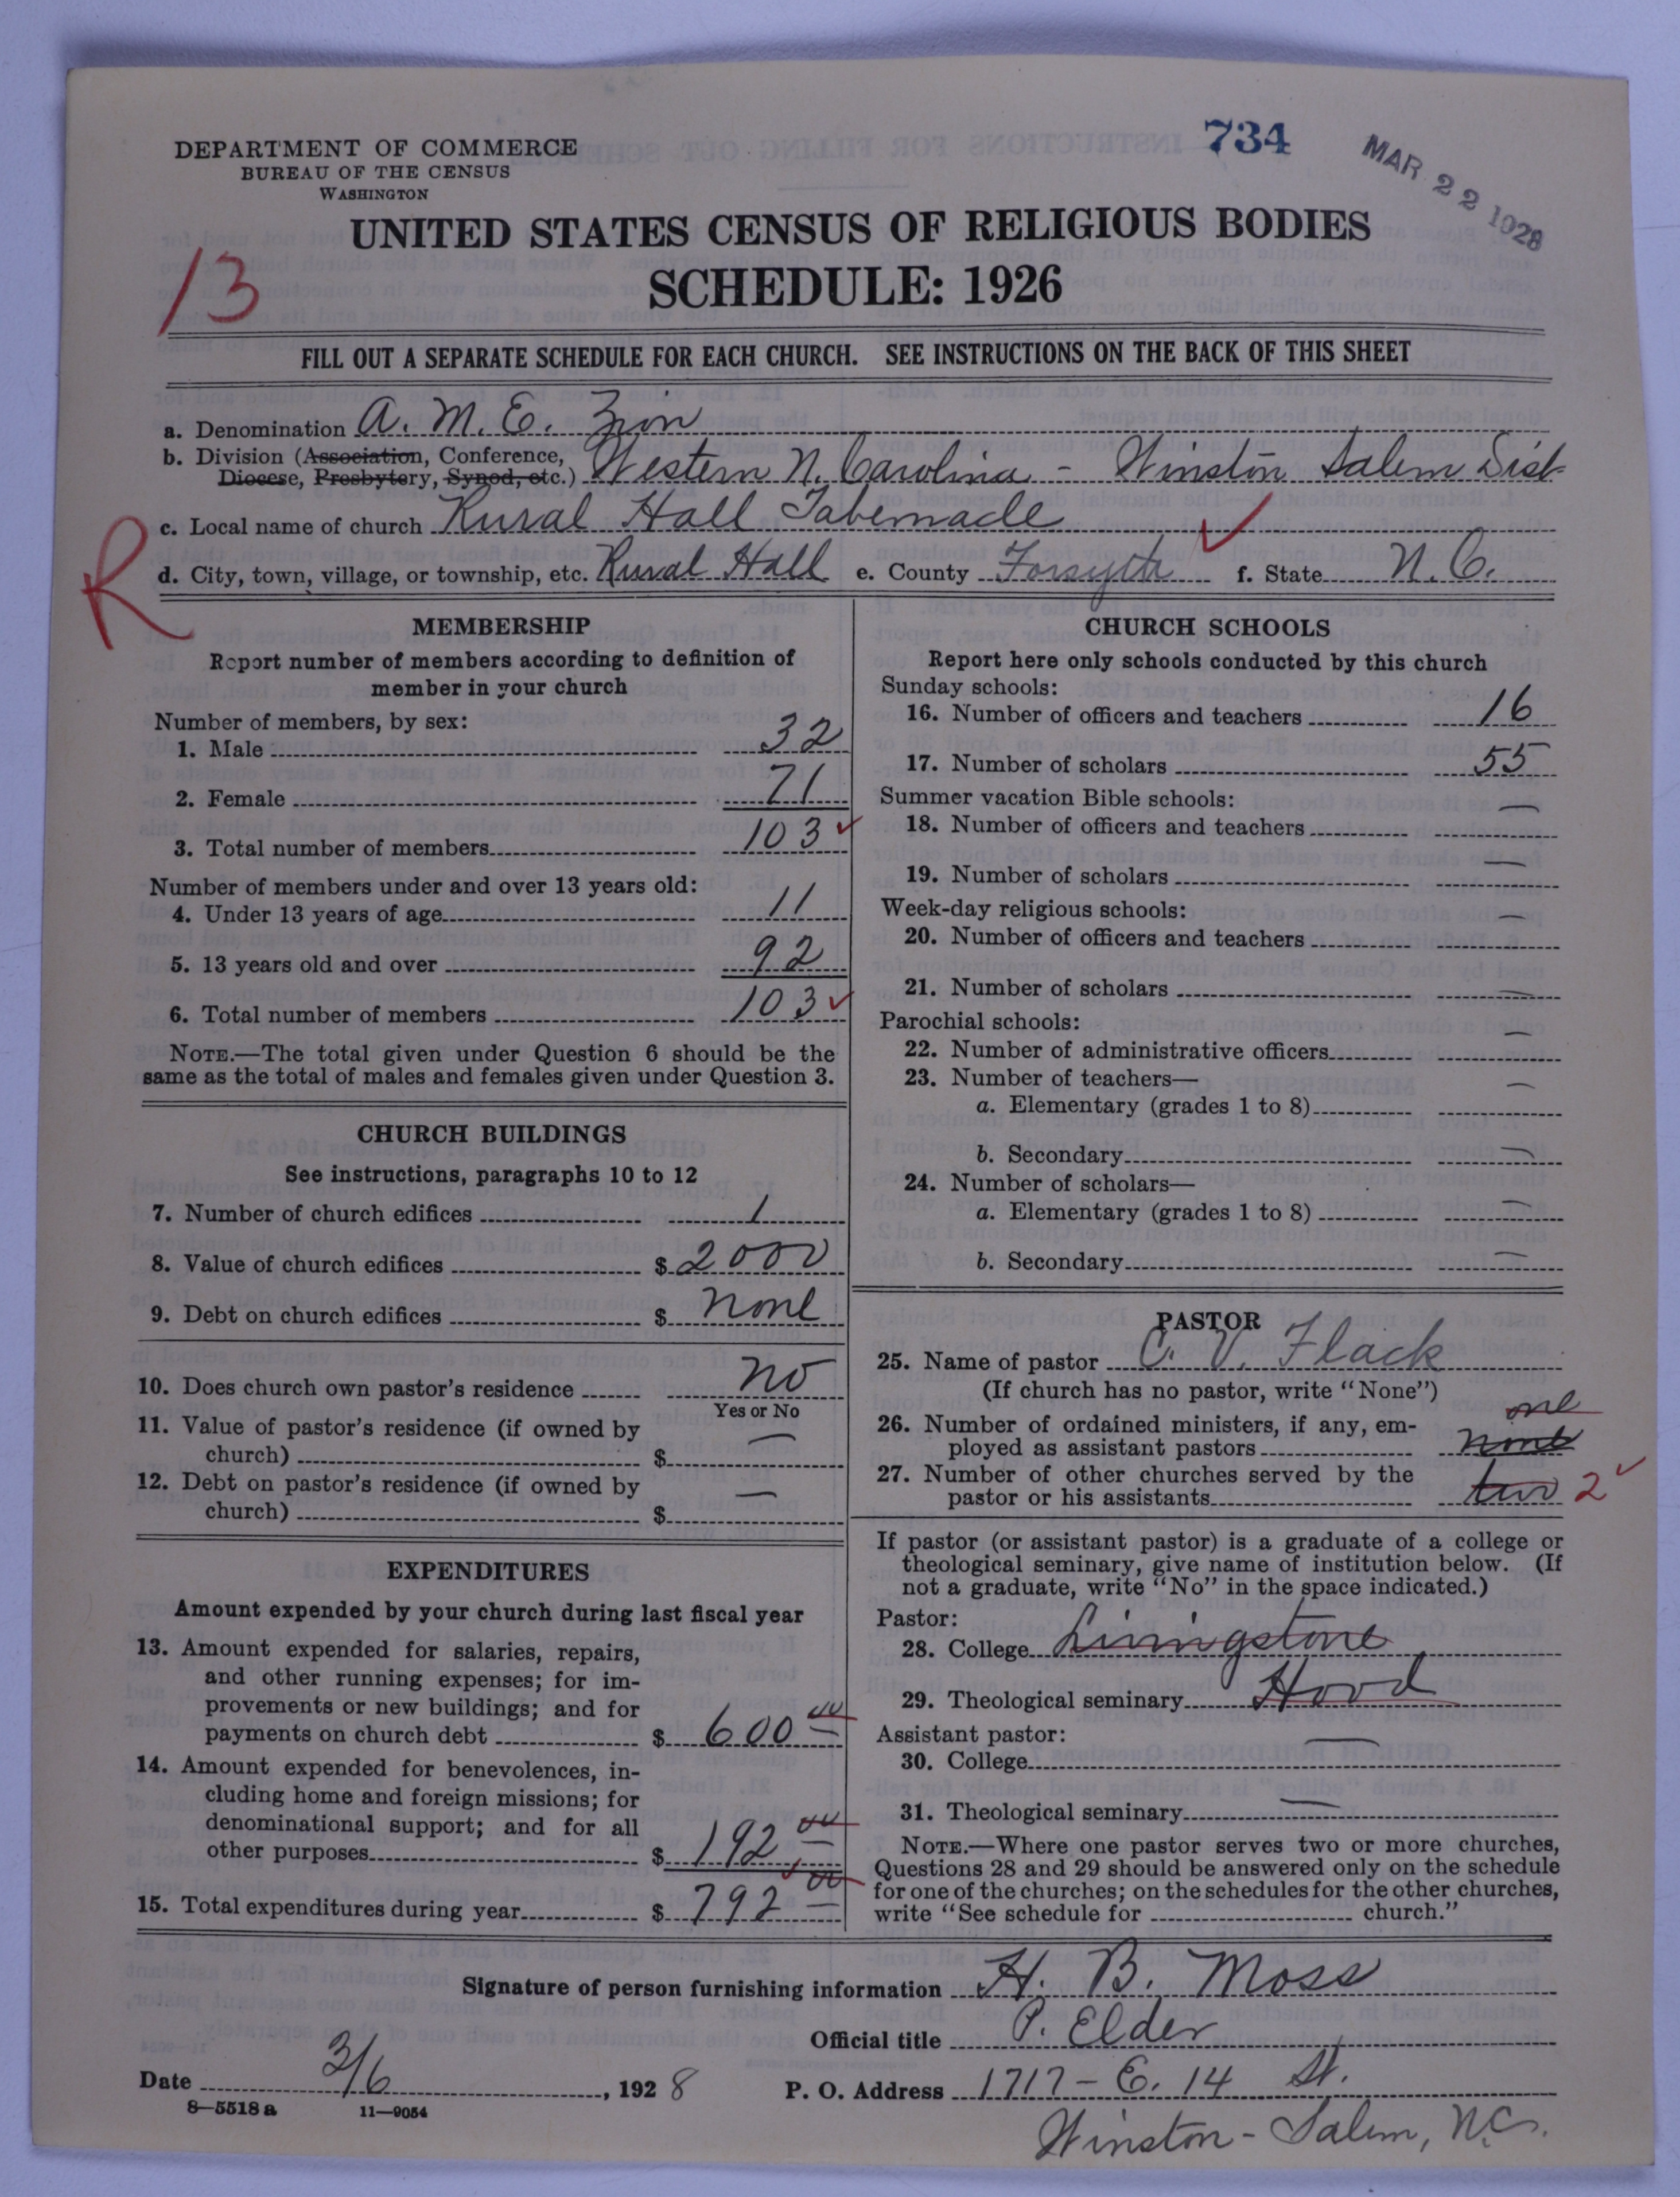 734
MAR 22 1928
DEPARTMENT OF COMMERCE
BUREAU OF THE CENSUS
WASHINGTON
UNITED STATES CENSUS OF RELIGIOUS BODIES
SCHEDULE: 1926
13
FILL OUT A SEPARATE SCHEDULE FOR EACH CHURCH. SEE INSTRUCTIONS ON THE BACK OF THIS SHEET
a. Denomination A. M. E. Zion
b. Division (Association, Conference,
Diocese, Presbytery, Synod, etc.) Western N. Carolina - Winston Salem Dist
c. Local name of church Rural Hall Tabernacle
R
d. City, town, village, or township, etc. Rural Hall e. County Forsyth f. State N.C.
MEMBERSHIP
Report number of members according to definition of
member in your church
Number of members, by sex:
1. Male 32
2. Female 71
3. Total number of members 103
Number of members under and over 13 years old:
4. Under 13 years of age 11
5. 13 years old and over 92
6. Total number of members 103
NOTE.—The total given under Question 6 should be the
same as the total of males and females given under Question 3.
CHURCH BUILDINGS
See instructions, paragraphs 10 to 12
7. Number of church edifices 1
8. Value of church edifices $ 2000
9. Debt on church edifices $ none
10. Does church own pastor's residence no
Yes or No
11. Value of pastor's residence (if owned by
church) $ —
12. Debt on pastor's residence (if owned by
church) $ —
EXPENDITURES
Amount expended by your church during last fiscal year
13. Amount expended for salaries, repairs,
and other running expenses; for im-
provements or new buildings; and for
payments on church debt $ 600 00
14. Amount expended for benevolences, in-
cluding home and foreign missions; for
denominational support; and for all
other purposes $ 192 00
15. Total expenditures during year $ 792 00
CHURCH SCHOOLS
Report here only schools conducted by this church
Sunday schools:
16. Number of officers and teachers 16
17. Number of scholars 55
Summer vacation Bible schools:
18. Number of officers and teachers —
19. Number of scholars —
Week-day religious schools:
20. Number of officers and teachers —
21. Number of scholars —
Parochial schools:
22. Number of administrative officers —
23. Number of teachers—
a. Elementary (grades 1 to 8) —
b. Secondary —
24. Number of scholars—
a. Elementary (grades 1 to 8) —
b. Secondary —
PASTOR
25. Name of pastor C. V. Flack
(If church has no pastor, write "None")
one
26. Number of ordained ministers, if any, em-
ployed as assistant pastors none
27. Number of other churches served by the
pastor or his assistants two 2
If pastor (or assistant pastor) is a graduate of a college or
theological seminary, give name of institution below. (If
not a graduate, write "No" in the space indicated.)
Pastor:
28. College Livingstone
29. Theological seminary Hood
Assistant pastor:
30. College —
31. Theological seminary —
NOTE.—Where one pastor serves two or more churches,
Questions 28 and 29 should be answered only on the schedule
for one of the churches; on the schedules for the other churches,
write "See schedule for church."
Signature of person furnishing information H. B. Moss
Official title P. Elder
Date 3/6, 1928 P. O. Address 1717 - E. 14 St.
8—5518 a 11—9054
Winston - Salem, N.C.